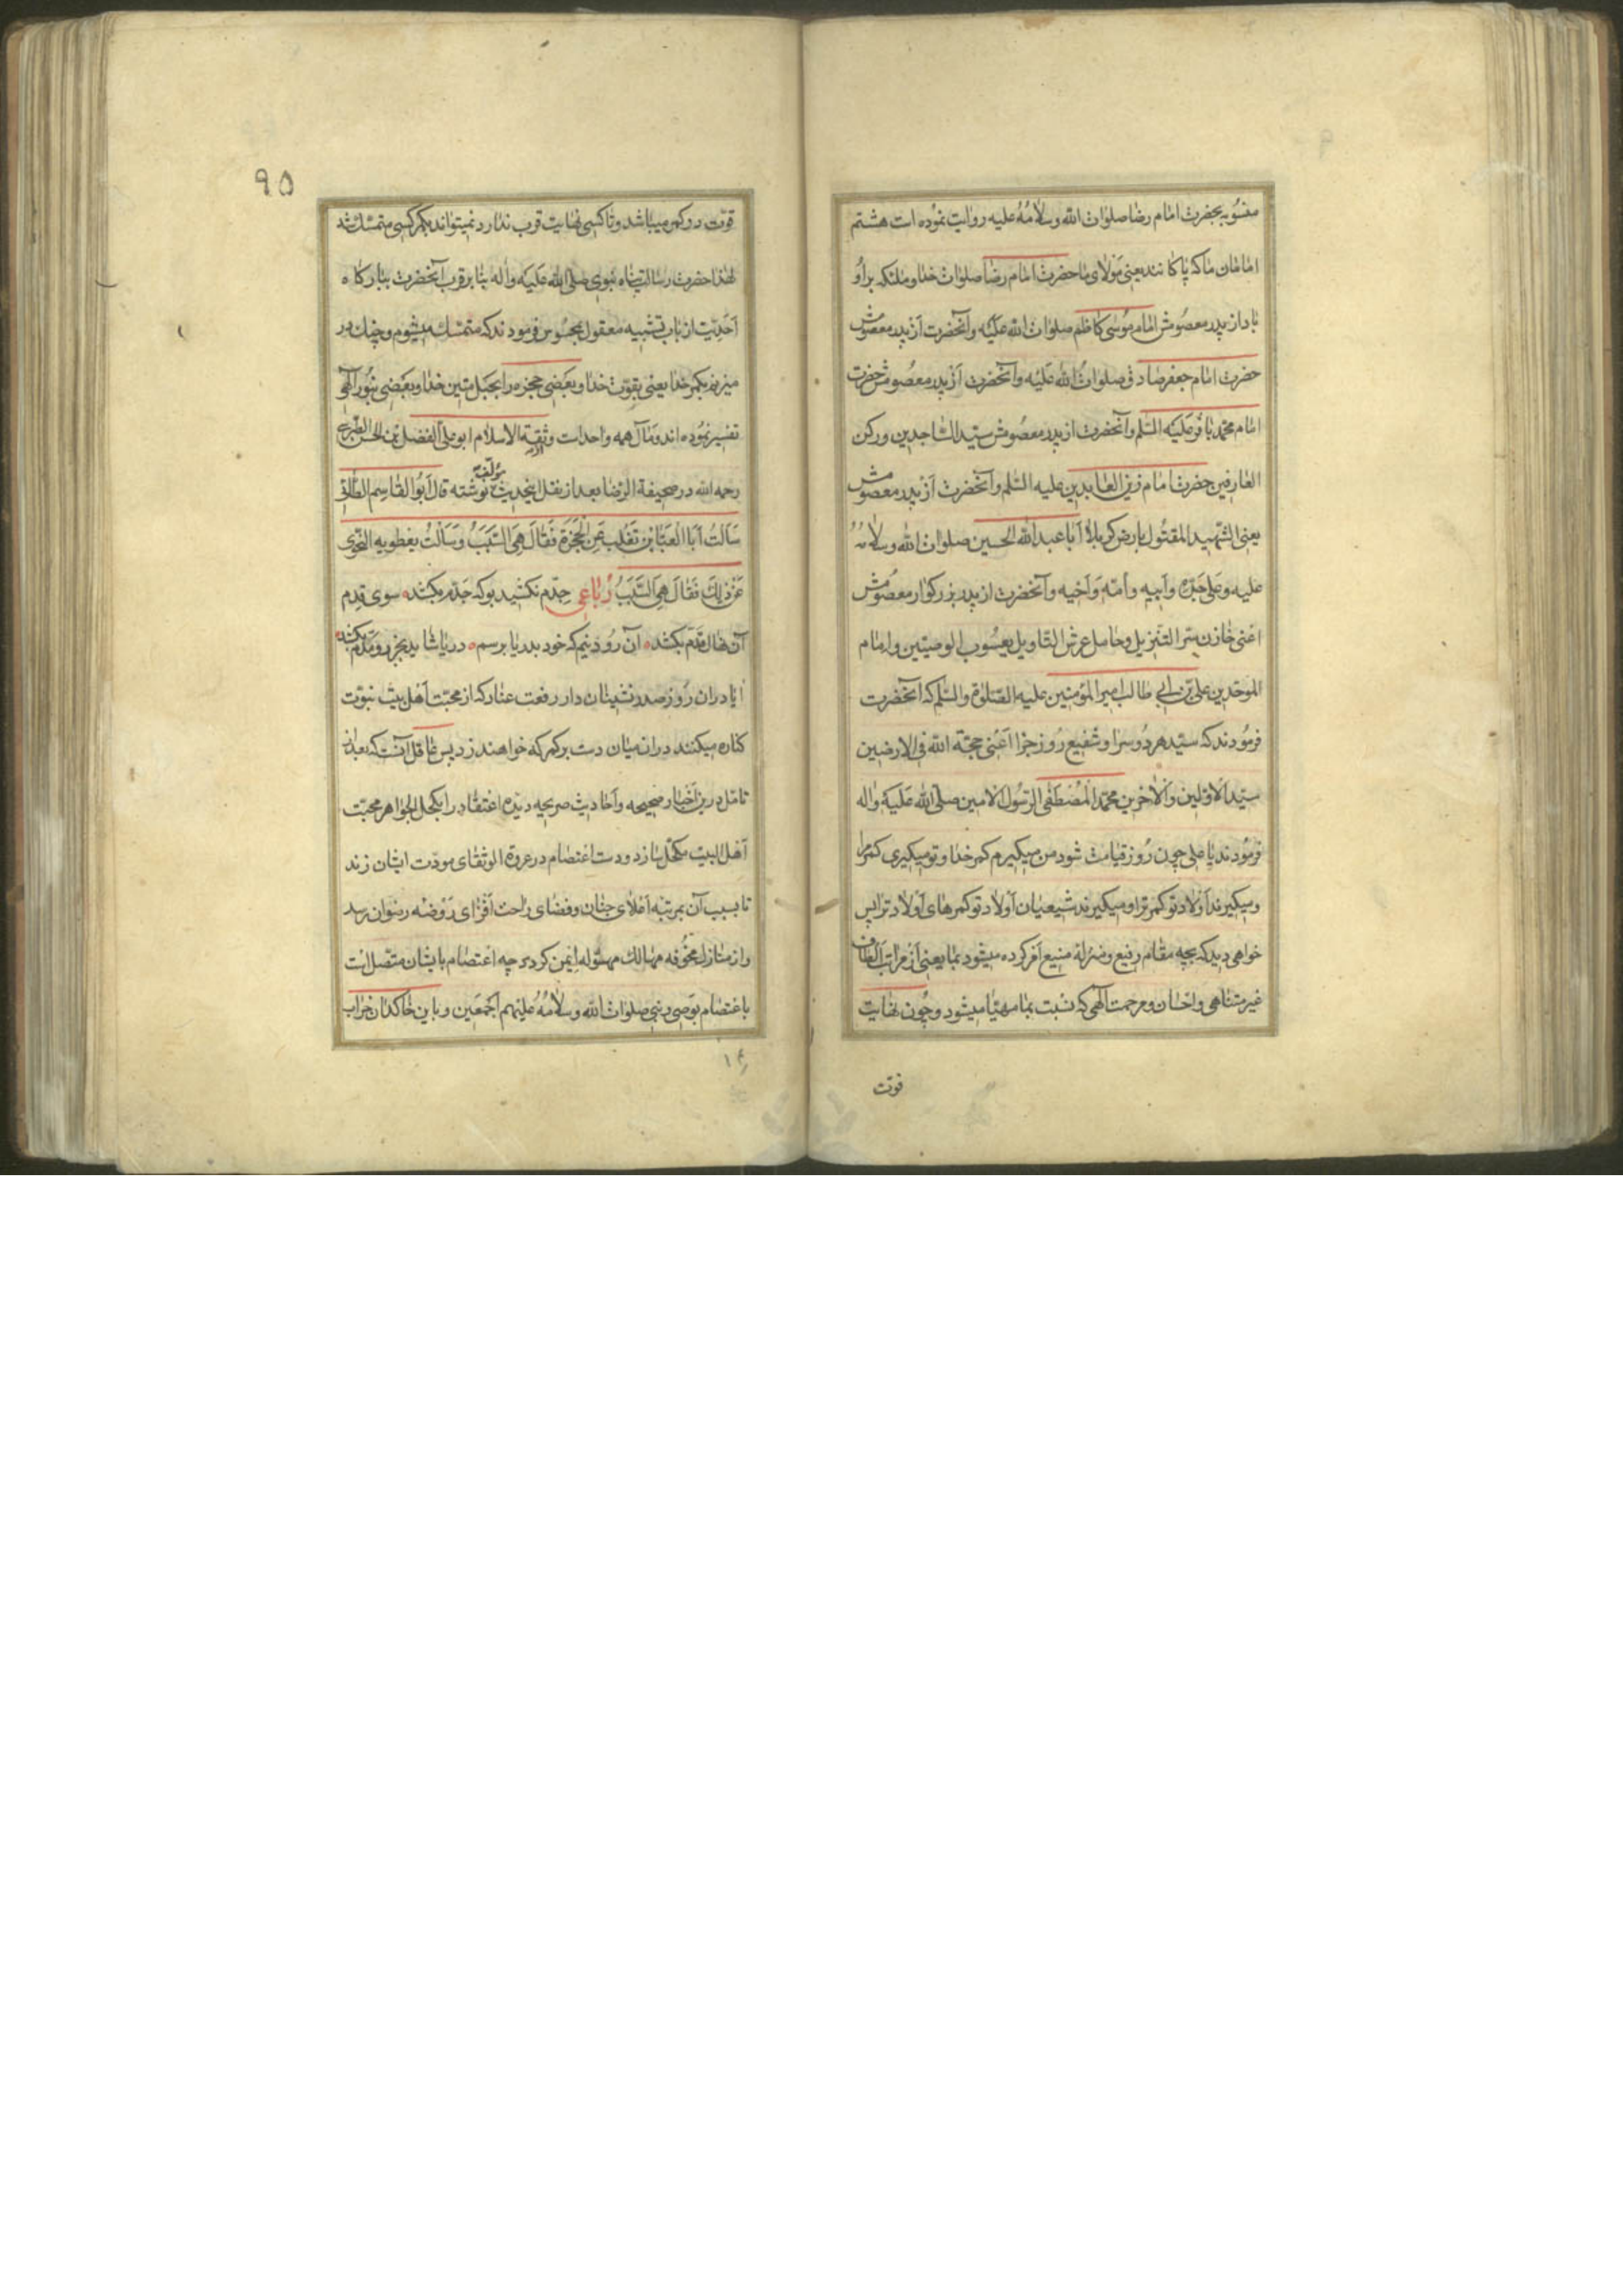 منسوبه بحضرت امام رضا صلوات الله وسلامه علیه روایت نموده است هشتم
امامان ما که پاکانند یعنی مولای ما حضرت امام رضا صلوات خدا و ملئکه بر او
باد از پدر معصومش امام موسی کاظم صلوات الله علیه وآنحضرت از پدر معصومش
حضرت امام جعفر صادق صلوات الله علیه وآنحضرت از پدر معصومش حضرت
امام محمد باقر علیه السلم وآنحضرت از پدر معصومش سید الساجدین ورکن
العارفین حضرت امام زین العابدین علیه السلم وآنحضرت از پدر معصومش
یعنی الشهید المقتول بارض کربلا ابا عبد الله الحسین صلوات الله وسلامه
علیه وعلی جده وابیه وامه واخیه وآنحضرت از پدر بزرکوار معصومش
اعنی خازن سر التنزیل وحامل عرش التاویل یعسوب الوصیین وامام
الموحدین علی بن ابی طالب امیر المؤمنین علیه الصلوة والسلم که آنحضرت
فرمودند که سید هر دو سرا وشفیع روز جزا اعنی حجة الله فی الارضین
سید الاولین والاخرین محمد المصطفی الرسول الامین صلی الله علیه واله
فرمودند یا علی چون روز قیامت شود من میکیرم کمر خدا وتو میکیری کمر مرا
ومیکیرند اولاد تو کمر ترا ومیکیرند شیعیان اولاد تو کمرهای اولاد ترا پس
خواهی دید که بچه مقام رفیع ومنزله منیع امر کرده میشود بما یعنی از مراتب الطاف
غیر متناهی واحسان ومرحمت الهی که نسبت بما مهیا میشود وچون نهایت
قوت
۹۵
قوت در کمر میباشد وتا کسی نهایت قرب ندارد نمیتواند بکمر کسی متمسک شد
لهذا حضرت رسالت پناه نبوی صلی الله علیه واله بنا بر قرب آنحضرت ببارکاه
احدیت از باب تشبیه معقول بمحسوس فرمودند که متمسک میشوم وچنک در
میزنم بکمر خدا یعنی بقوت خدا وبعضی حجزه را بحبل متین خدا وبعضی بنور الهی
تفسیر نموده اند ومآل همه واحدست وثقة الاسلام ابو علی الفضل بن الحسن الطبرسی
رحمه الله در صحیفة الرضا بعد از نقل اینحدیث نوشته قال ابو القاسم الطائی
مؤلفه
سالت ابا العباس بن تغلب عن الحجزة فقال هی السبب وسالت نفطویه النحوی
عن ذلک فقال هی السبب رباعی جدم نکشید بو که جدم بکشد سوی قدم
آن نهال قدم بکشد ان رود نیم که خود بدریا برسم دریا شاید بجزر ومدم بکشد
ایا دران روز صدر نشینان دار رفعت عنا رکه از محبت اهل بیت نبوت
کناره میکنند دران میان دست بر کمر که خواهند زد پس عاقل آنست که بعد از
تامل درین اخبار صحیحه واحادیث صریحه دیده اعتقاد را بکحل الجواهر محبت
اهل البیت مکحل سازد ودست اعتصام در عروة الوثقای مودت ایشان زند
تا بسبب آن بمرتبه اعلای جنان وفضای راحت افزای روضه رضوان رسد
واز منازل مخوفه مهالک مهئوله ایمن کردد چه اعتصام بایشان متصل است
باعتصام بوصی ونبی صلوات الله وسلامه علیهم اجمعین وباین خاکدان خراب